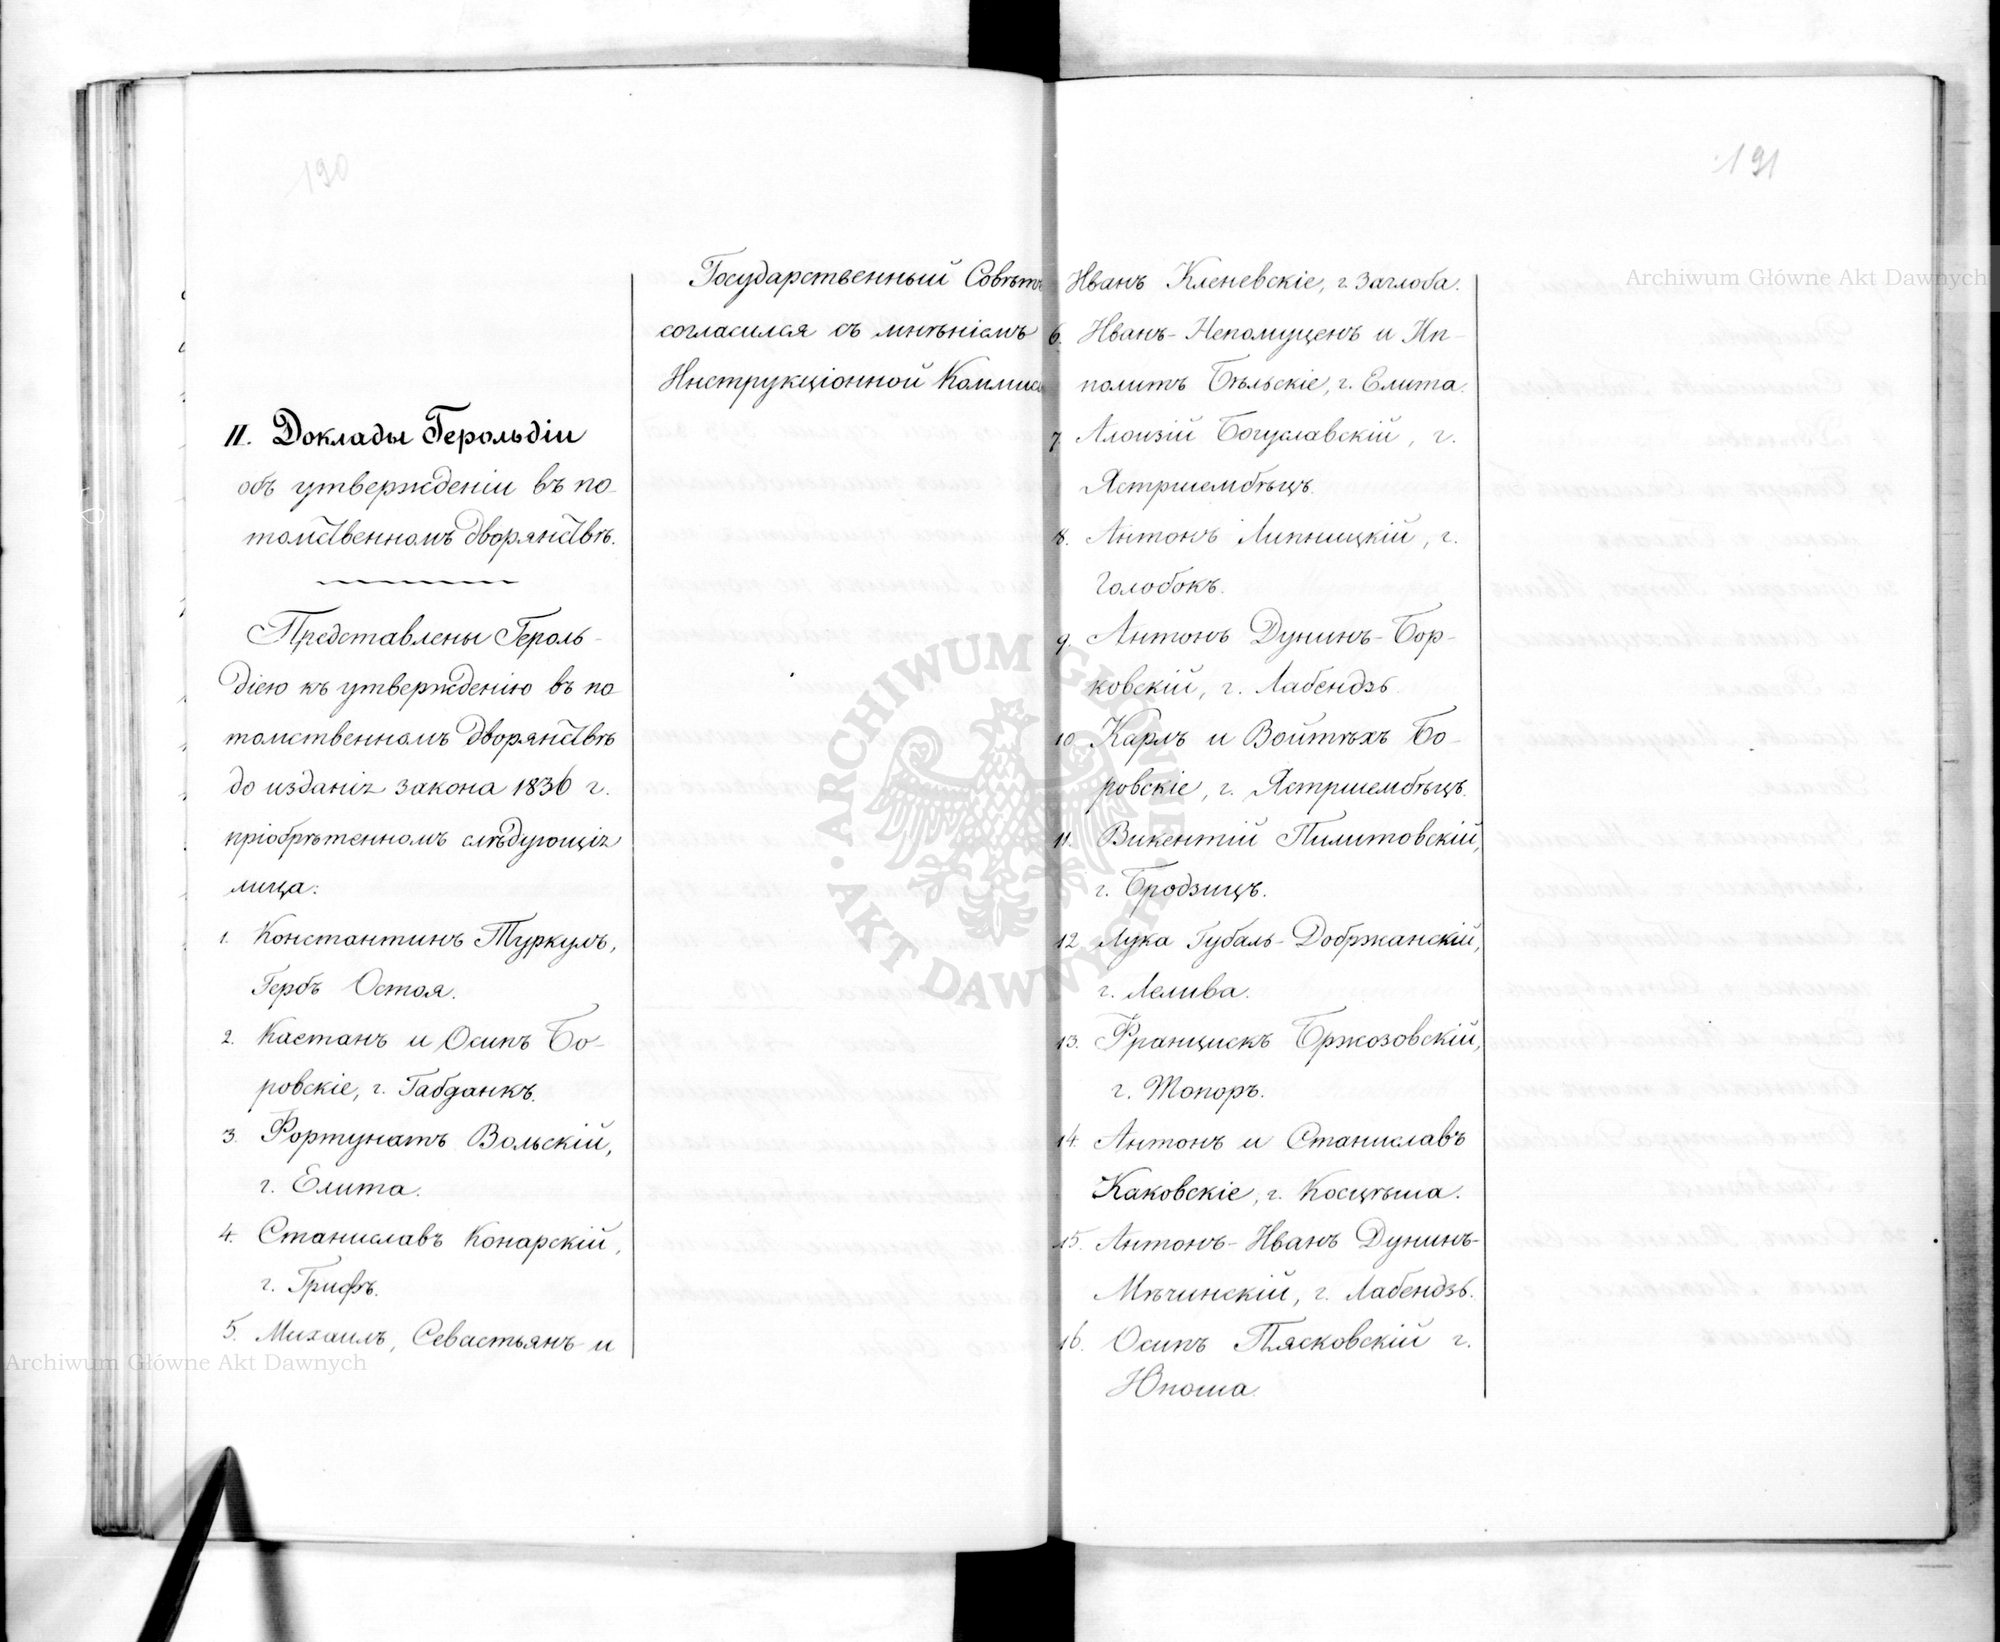 190
II. Доклады Герольдіи
объ утвержденіи въ по-
томственномъ дворянствѣ.
Представлены Героль-
діею къ утвержденію въ по
томственномъ дворянствѣ
до изданія закона 1836 г.
пріобрѣтенномъ слѣдующія
лица:
1. Константинъ Туркулъ,
Гербъ Остоя.
2. Каетанъ и Осипъ Бо-
ровскіе, г. Габданкъ.
3. Фортунатъ Вольскій,
г. Елита.
4. Станиславъ Конарскій,
г. Грифъ.
5. Михаилъ, Севастьянъ и
Государственный Совѣтъ
согласился съ мнѣніемъ
Инструкціонной Коммис
191
Иванъ Кленевскіе, г. Заглоба.
6. Иванъ-Непомуценъ и Ип-
политъ Бѣльскіе, г. Елита.
7. Алоизій Богуславскій, г.
Ястршембѣцъ.
8. Антонъ Липницкій, г.
Голобокъ.
9. Антонъ Дунинъ-Бор-
ковскій, г. Лабендзь.
10 Карлъ и Войтѣхъ Бо-
ровскіе, г. Ястршембѣцъ.
11. Викентій Пилитовскій,
г. Бродзицъ.
12 Лука Губаль-Добржанскій,
г. Лелива.
13. Францискъ Бржозовскій,
г. Топоръ.
14. Антонъ и Станиславъ
Каковскіе, г. Косцѣша.
15. Антонъ-Иванъ Дунинъ-
Мѣчинскій, г. Лабендзь.
16. Осипъ Пясковскій г.
Юноша.
Archiwum Główne Akt Dawnych
Archiwum Główne Akt Dawnych
ARCHIWUM GŁÓWNE
AKT DAWNYCH